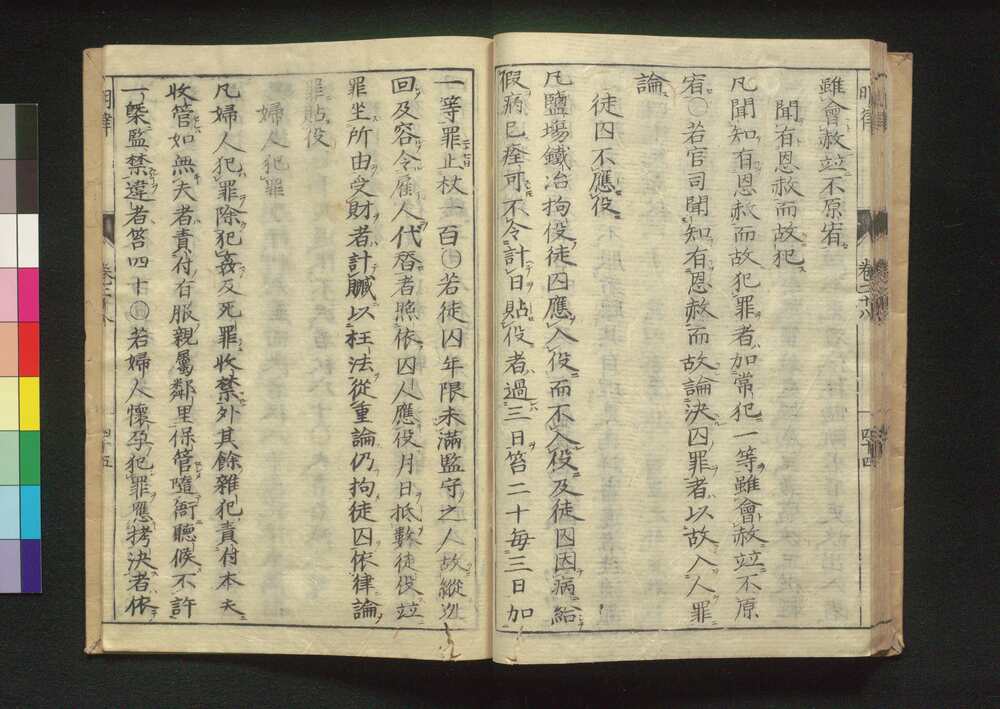 雖會赦竝不原宥
聞有恩赦而故犯
凡聞知有恩赦而故犯罪者加常犯一等雖會赦竝不原
宥○若官司聞知有恩赦而故論決囚罪者以故入人罪
論
徒囚不應役
凡鹽場鐵冶拘役徒囚應入役而不入役及徒囚因病給
假病已痊可不令計日貼役者過三日笞二十每三日加
一等罪止杖一百○若徒囚年限未滿監守之人故縱逃
回及容令雇人代替者照依囚人應役月日抵數徒役竝
罪坐所由受財者計贓以枉法從重論仍拘徒囚依律論
罪貼役
婦人犯罪
凡婦人犯罪除犯姦及死罪收禁外其餘雜犯責付本夫
收管如無夫者責付有服親屬鄰里保管隨衙聽候不許
一槩監禁違者笞四十○若婦人懷孕犯罪應拷決者依
明律
卷二十八
四十四
明律
卷二十八
四十五